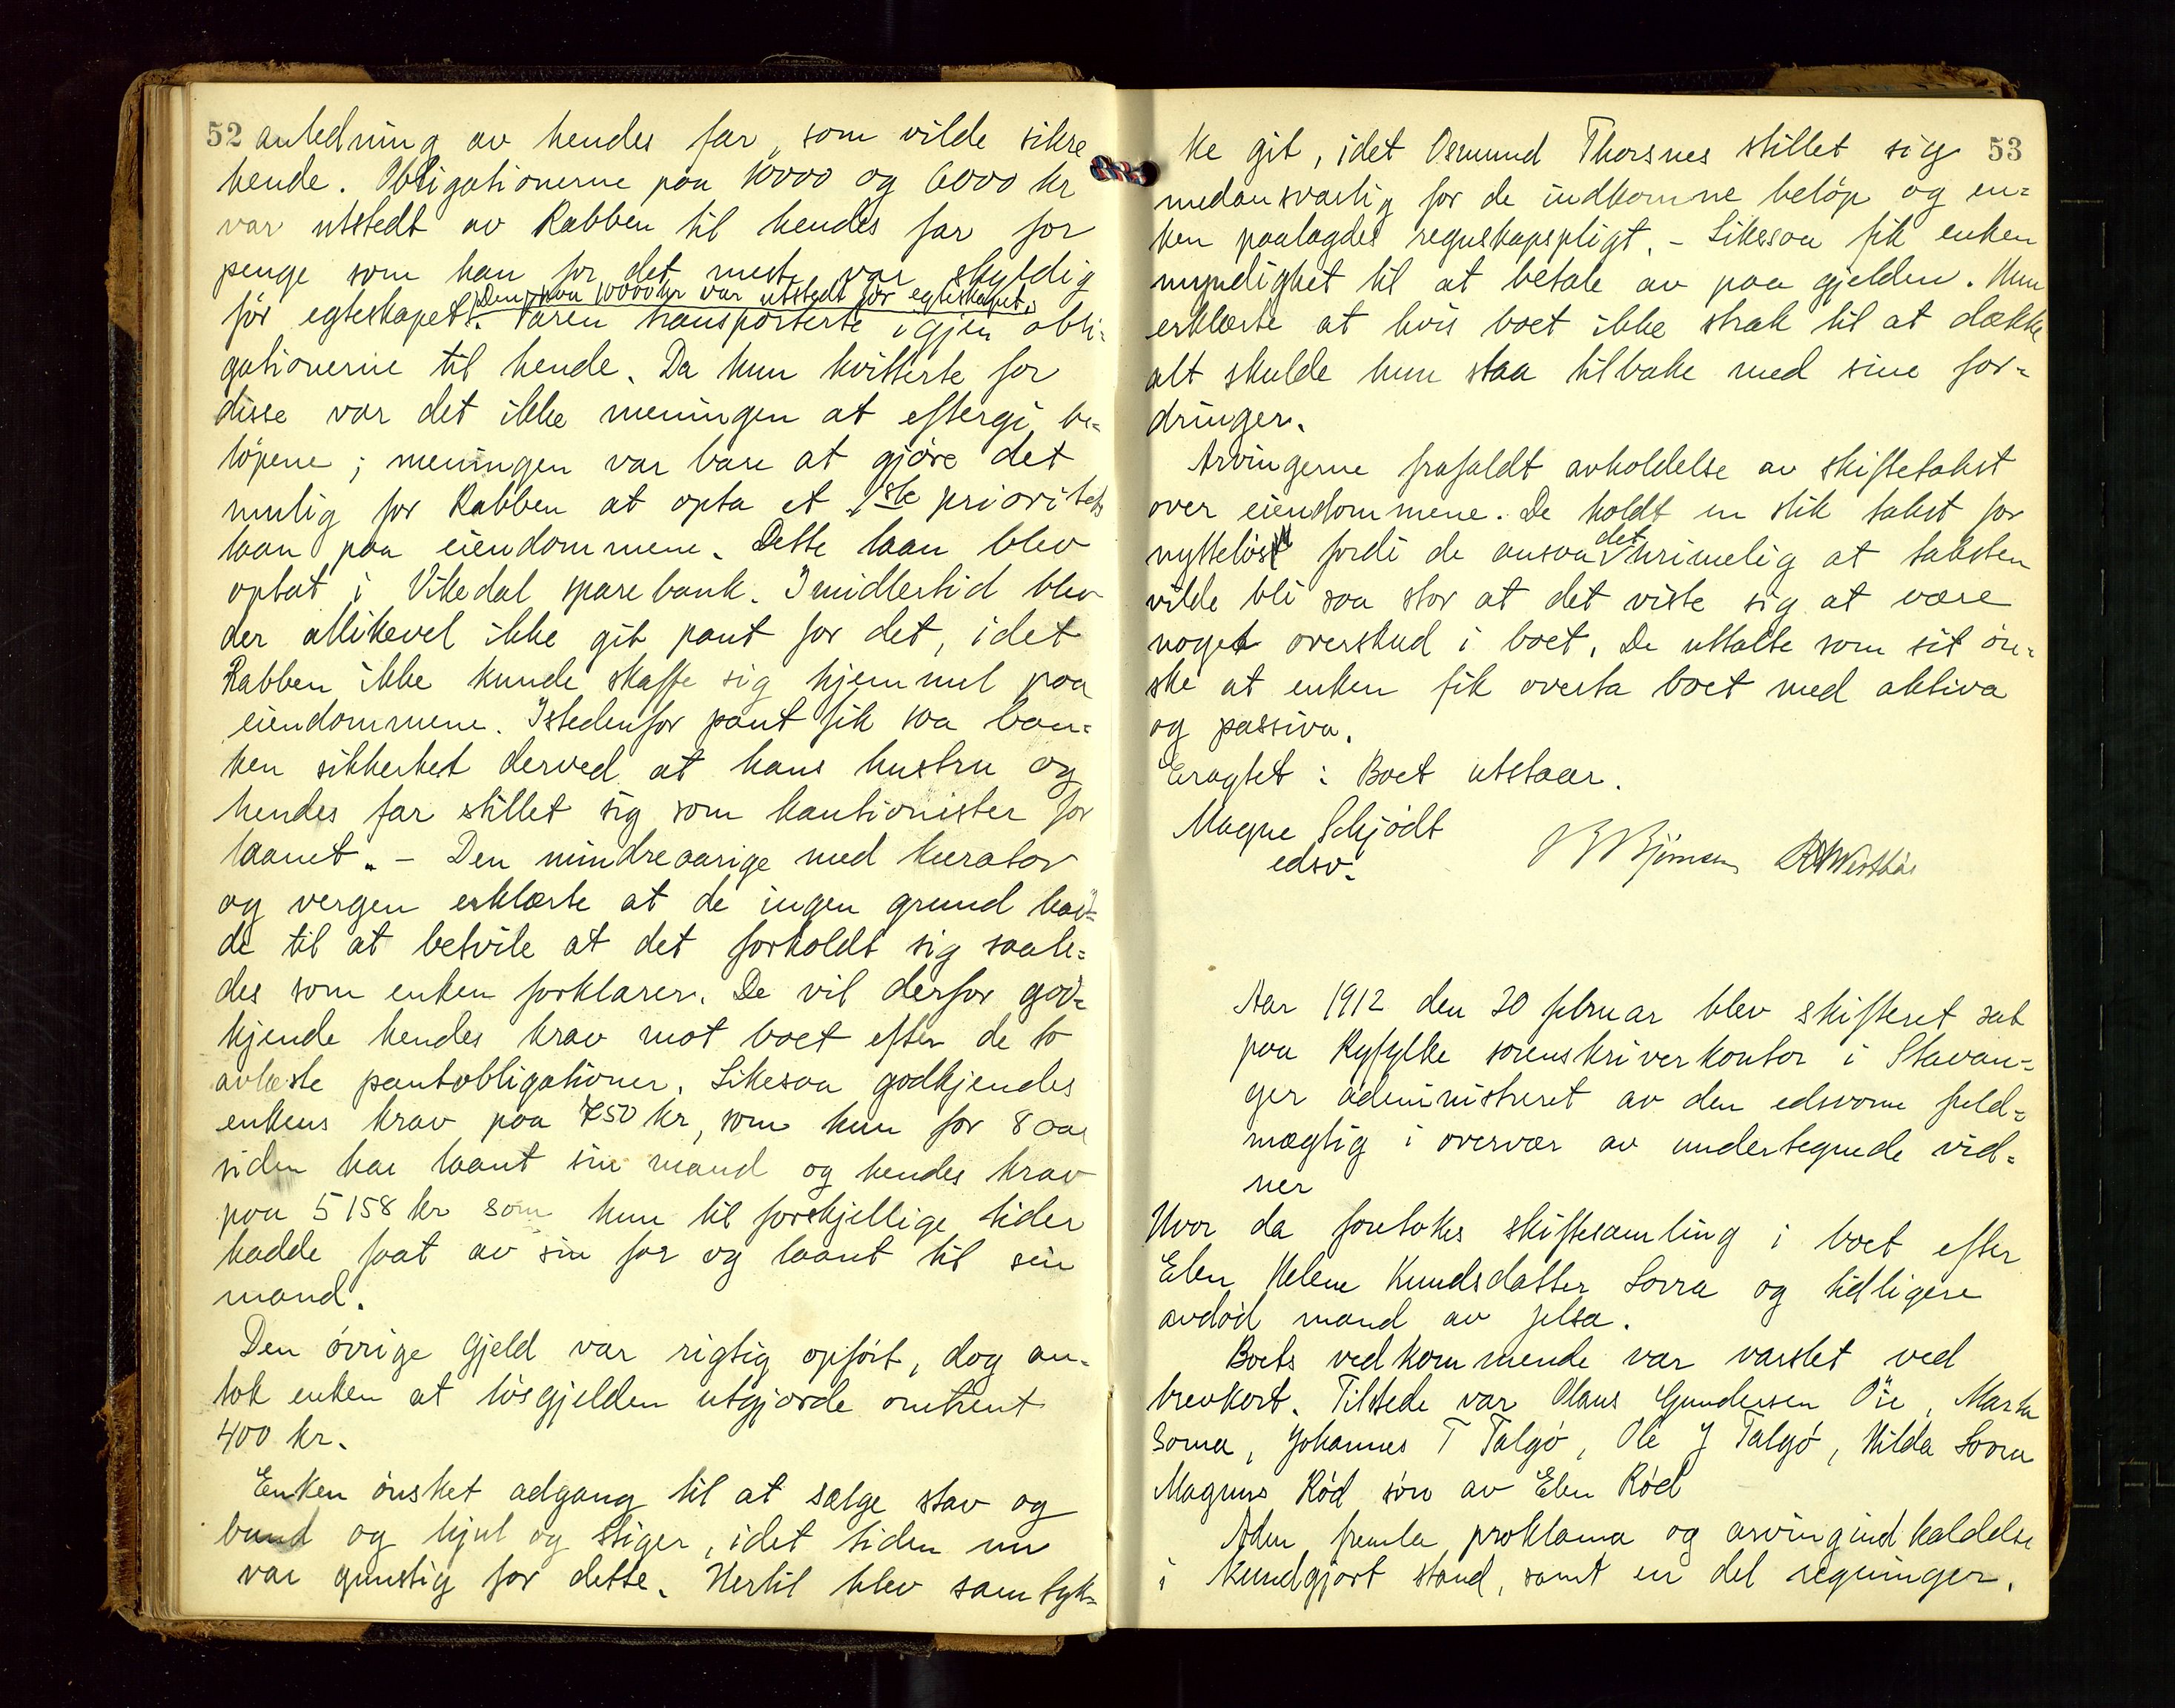 52 anledning av hendes far, som vilde sikre
hende. Obligationerne paa 10000 og 6000 kr
var utstedt av Rabben til hendes far for
penge som han for det meste var skyldig
(Den paa 10000 kr var utstedt før egteskapet.
før egteskapet. Faren transporterte igjen obli-
gationerne til hende. Da hun kvitterte for
disse var det ikke meningen at eftergi be-
løpene; meningen var bare at gjøre det
mulig for Rabben at opta et 1ste prioritets
laan paa eiendommene. Dette laan blev
optat i Vikedal sparebank. Imidlertid blev
der allikevel ikke git pant for det, idet
Rabben ikke kunde skaffe sig hjemmel paa
eiendommene. Istedenfor pant fik saa ban-
ken sikkerhet derved at hans hustru og
hendes far stillet sig som kautionister for
laanet. - Den mindreaarige med kurator
og vergen erklærte at de ingen grund hav-
de til at betvile at det forholdt sig saale-
des som enken forklarer. De vil derfor god-
kjende hendes krav mot boet efter de to
avlæste pantobligationer. Likesaa godkjendes
enkens krav paa 750 kr, som hun for 8 aar
siden har laant sin mand og hendes krav
paa 5158 kr som hun til forskjellige tider
hadde faat av sin far og laant til sin
mand.
Den øvrige gjeld var rigtig opført, dog an-
tok enken at løsgjelden utgjorde omtrent
400 kr.
Enken ønsket adgang til at sælge stav og
baand og hjul og stiger, idet tiden nu
var gunstig for dette. Hertil blev samtyk-
ke git, idet Osmund Thorsnes stillet sig 53
medansvarlig for de indkomne beløp og en-
ken paalagdes regnskapspligt. - Likesaa fik enken
myndighet til at betale av paa gjelden. Hun
erklærte at hvis boet ikke strak til at dække
alt skulde hun staa tilbake med sine for-
dringer.
Arvingerne frafaldt avholdelse av skiftetakst
over eiendommene. De holdt en slik takst for
nytteløs fordi de ansaa det urimelig at taksten
vilde bli saa stor at det viste sig at være
noget overskud i boet. De uttalte som sit øn-
ske at enken fik overta boet med aktiva
og passiva.
Eragtet: Boet utstaar.
Magne Schjødt
edsv.
Bjørnsen
Aar 1912 den 20 februar blev skifteret sat
paa Ryfylke sorenskriverkontor i Stavan-
ger administreret av den edsvorne fuld-
mægtig i overvær av undertegnede vid-
ner
Hvor da foretokes skiftesamling i boet efter
Elen Helene Knudsdatter Sovra og tidligere
avdød mand av Jelsa.
Boets vedkommende var varslet ved
brevkort. Tilstede var Olaus Gundersen Øie, Marta
Soma, Johannes T Talgø, Ole J Talgø, Hilda Sovra
Magnus Rød søn av Elen Rød
Adm fremla proklama og arvingindkaldelse
i kundgjort stand, samt en del regninger.